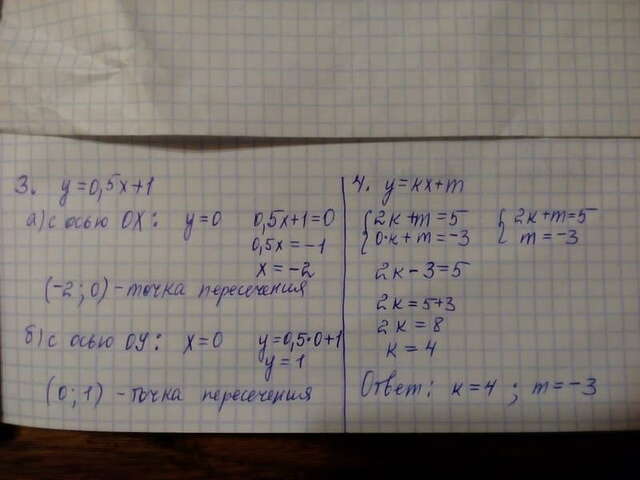 3. y=0,5x+1
а) с осью OX: y=0 0,5x+1=0
0,5x=-1
x=-2
(-2;0)-точка пересечения
б) с осью OY: x=0 y=0,5·0+1
y=1
(0;1)-точка пересечения
4. y=кx+m
{2к+m=5 {2к+m=5
0·к+m=-3 m=-3
2к-3=5
2к=5+3
2к=8
к=4
Ответ: к=4; m=-3